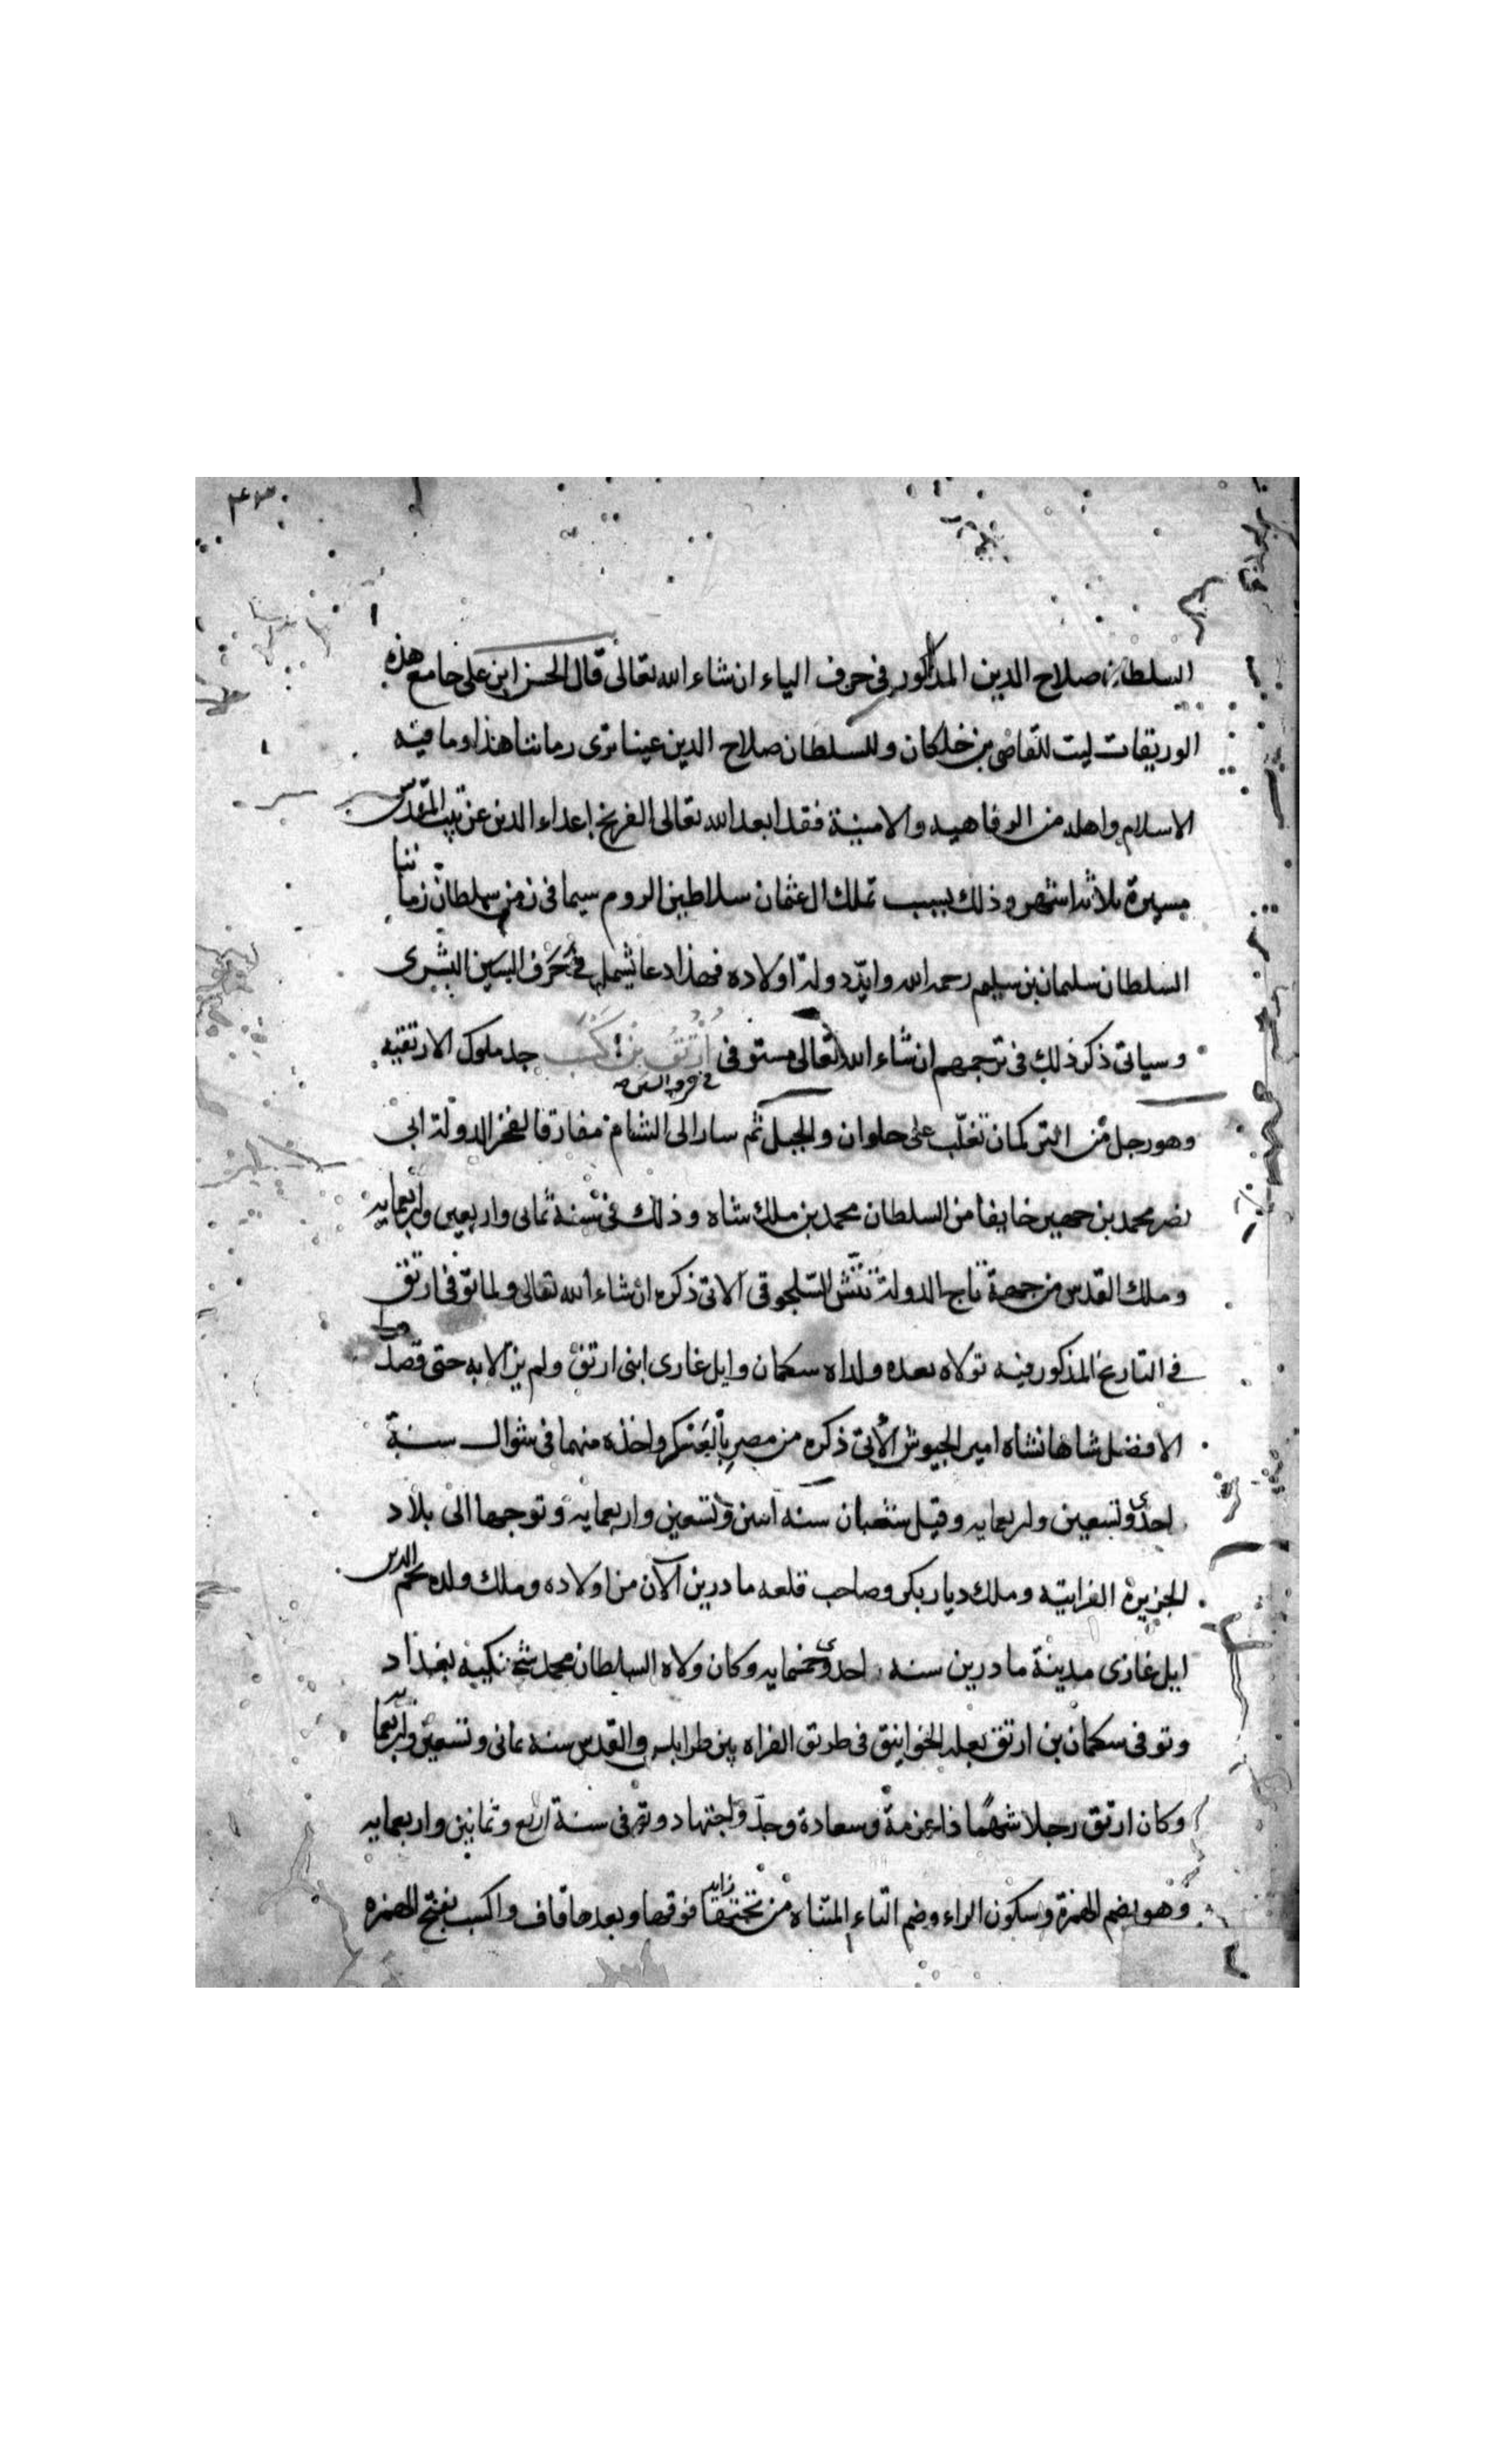 السلطان صلاح الدين المذكور في حرف الياء ان شاء الله تعالى قال الحسن ابن على جامع هذه
الوريقات ليت للقاضى بن خلكان وللسلطان صلاح الدين عينا ترى زماننا هذا وما فيه
الاسلام واهله من الرفاهيه والامنية فقد ابعد الله تعالى الفرنج اعداء الدين عن بيت المقدس
مسيرة ثلاثة اشهر وذلك بسبب تملك ال عثمان سلاطين الروم سيما في زمن سلطان زماننا
السلطان سليمان بن سليم رحمه الله وايد دولة اولاده فهذا دعا يشمل في حرف السين
وسياتى ذكر ذلك في ترجمتهم ان شاء الله تعالى مستوفى ارتق بن اكسب جد ملوك الارتقيه
في حرف السين
وهو رجل من التركمان تغلب على حلوان والجبل ثم سار الى الشام مفارقا لفخر الدولة ابى
نصر محمد بن جهير خايفا من السلطان محمد بن ملك شاه وذلك في سنة ثمانى واربعين واربعمايه
وملك القدس من جهة تاج الدولة تتش السلجوقى الاتى ذكره ان شاء الله تعالى ولما توفى ارتق
في التاريخ المذكور فيه تولاه بعده ولداه سكمان وايل غازى ابنى ارتق ولم يزالا به حتى قصدهما
الافضل شاهانشاه امير الجيوش الآتى ذكره من مصر بالعسكر واخذه منهما في شوال سنة
احدى وتسعين واربعمايه وقيل شعبان سنه اسن وتسعين واربعمايه وتوجها الى بلاد
الجزيرة الفراتيه وملك ديار بكر وصاحب قلعه ماردين الآن من اولاده وملك ولده نجم الدين
ايل غازى مدينة ماردين سنه احدى وخمسمايه وكان ولاه السلطان محمد شحنكية بغداد
وتوفى سكمان بن ارتق بعله الخوانيق في طريق الفراه بين طرابلس والقدس سنه ثمانى وتسعين واربعمايه
وكان ارتق رجلا شهما ذا عزمة وسعادة وجد واجتهاد وتوفى في سنة اربع وثمانين واربعمايه
وهو بضم الهمزة وسكون الراء وضم التاء المثناة من تحتها زايد فوقها وبعدها قاف واكسب بفتح الهمزه